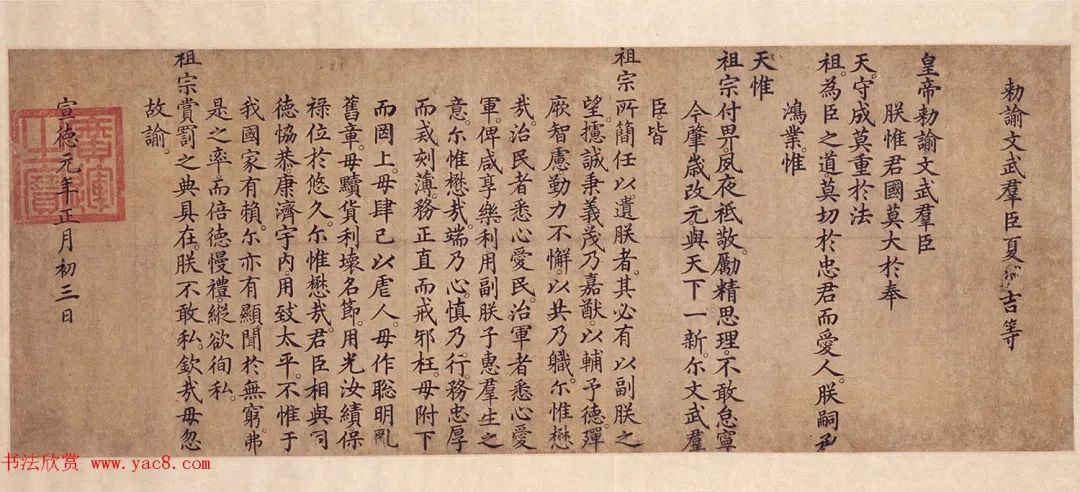 勑諭文武羣臣夏原吉等
皇帝勑諭文武羣臣
朕惟君國莫大於奉
天。守成莫重於法
祖。為臣之道莫切於忠君而愛人。朕嗣承
鴻業。惟
天惟
祖宗付畀。夙夜祗敬。勵精思理。不敢怠寧
今肇歲改元與天下一新。尔文武羣
臣。皆
祖宗所簡任以遺朕者。其必有以副朕之
望。攄誠秉義。茂乃嘉猷。以輔予德。殫
厥智慮。勤力不懈。以共乃職。尔惟懋
哉。治民者悉心愛民。治軍者悉心愛
軍。俾咸享樂利。用副朕子惠羣生之
意。尔惟懋哉。端乃心。慎乃行。務忠厚
而戒刻薄。務正直而戒邪枉。毋附下
而罔上。毋肆己以虐人。毋作聰明亂
舊章。毋黷貨利壞名節。用光汝績。保
祿位於悠久。尔惟懋哉。君臣相與同
德恊恭。康濟宇內。用致太平。不惟于
我國家有賴。尔亦有顯聞於無窮。弗
是之率。而倍德慢禮。縱欲徇私。
祖宗賞罰之典具在。朕不敢私。欽哉毋忽
故諭。
宣德元年正月初三日
廣運之寶
书法欣赏 www.yac8.com